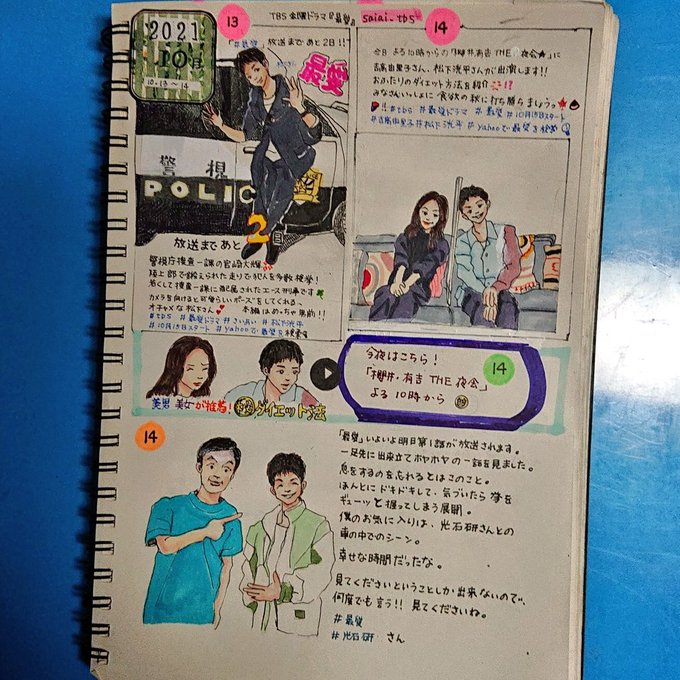 2021
10月
10.13〜14
13
TBS 金曜ドラマ『最愛』
saiai_tbs
14
「#最愛」放送まであと2日!!
最愛
警視
POLIC
放送まであと2日
警視庁捜査一課の宮崎大輝
陸上部で鍛えられた走りで犯人を多数検挙!
若くして捜査一課に配属されたエース刑事です
カメラを向けると可愛らしいポーズをしてくれる、
オチャメな松下さん 本編はめっちゃ男前!!
#tbs #最愛ドラマ #さいあい #松下洸平
#10月15日スタート #yahooで最愛を検索
今日よる10時からの「櫻井有吉THE夜会★」に
吉高由里子さん、松下洸平さんが出演します!!
おふたりのダイエット方法を紹介!?
みなさんいっしょに食欲の秋に打ち勝ちましょう。
!! #tbs #最愛ドラマ #最愛 #10月15日スタート
#吉高由里子 #松下洸平 #yahooで最愛を検索
美男美女が推薦!
ダイエット法
今夜はこちら!
14
「櫻井・有吉THE夜会」
よる10時から
14
「最愛」いよいよ明日第1話が放送されます。
一足先に出来立てホヤホヤの一話を見ました。
息をするのを忘れるとはこのこと。
ほんとにドキドキして、気づいたら拳を
ギューッと握ってしまう展開。
僕のお気に入りは、光石研さんとの
車の中でのシーン。
幸せな時間だったな。
見てくださいということしか出来ないので、
何度でも言う!!見てくださいね。
#最愛
#光石研 さん